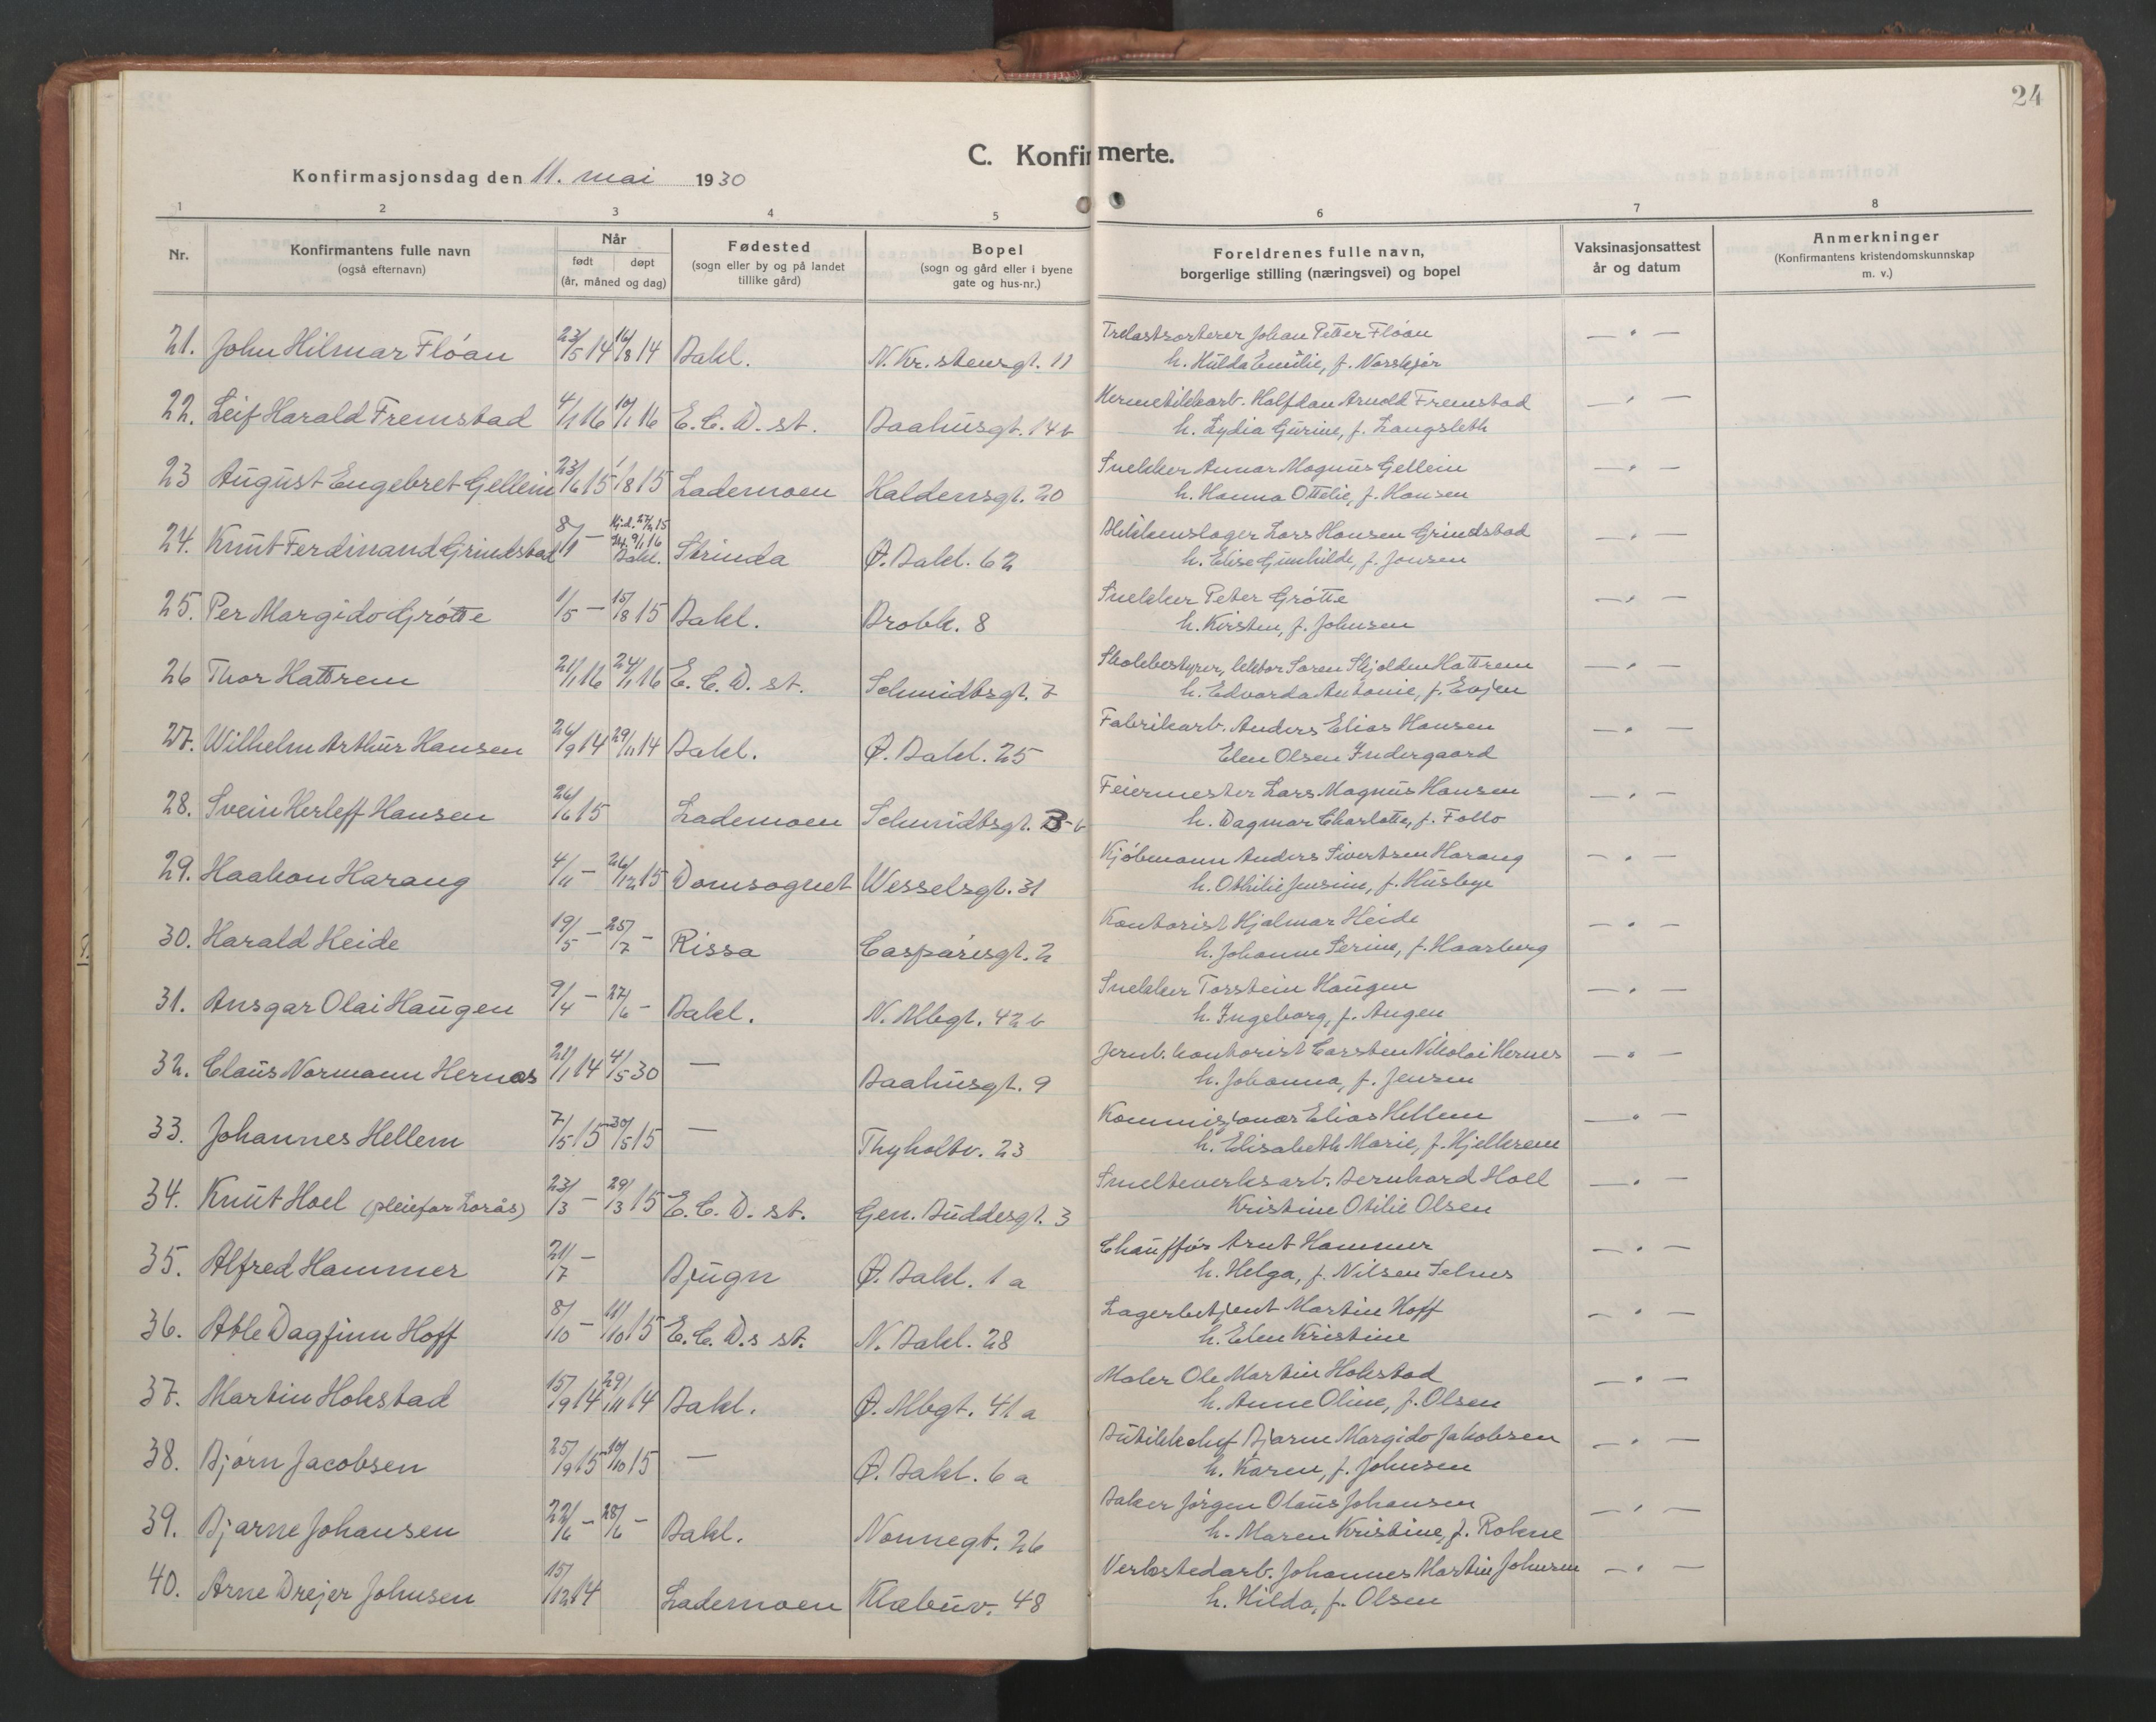 24
C. Konfirmerte.
Konfirmasjonsdag den 11. mai 1930
1 2 3 4 5 6 7 8
Nr. Konfirmantens fulle navn (også efternavn) Når født døpt (år, måned og dag) Fødested (sogn eller by og på landet tillike gård) Bopel (sogn og gård eller i byene gate og hus-nr.) Foreldrenes fulle navn, borgerlige stilling (næringsvei) og bopel Vaksinasjonsattest år og datum Anmerkninger (Konfirmantens kristendomskunnskap m. v.)
21. John Hilmar Flóan 23/5 14 16/8 14 Bakl. N. Kr.stensgt. 11 Trelastsorterer Johan Petter Flóan — . —
h. Hulda Emilie, f. Norskjør
22. Leif Harald Fremstad 4/1 16 10/1 16 E. C. D. st. Baahusgt. 14 b Hermetikkarb. Halfdan Arnold Fremstad — . —
h. Lydia Gurine, f. Langsleth
23 August Engebret Gellein 23/6 15 1/8 15 Lademoen Haldensgt. 20 Snekker Annar Magnus Gellein — . —
h. Hanna Ottelie, f. Hansen
24. Knut Ferdinand Grindstad 8/11 — Hj.d. 27/12 15 9/1 16 Bakl. Strinda Ø. Bakl. 62 Blikkenslager Lars Hansen Grindstad — . —
h. Elise Gunhilde, f. Jonsen
25. Per Margido Grótte 1/5 — 15/8 15 Bakl. Brobk. 8 Snekker Peter Grótte — . —
h. Kirsten, f. Johnsen
26 Thor Hattrem 21/1 16 24/1 16 E. C. D. st. Schmidtsgt. 7 Skolebestyrer, lektor Søren Skjolden Hattrem — . —
h. Edvarda Antonie, f. Evjen
27. Wilhelm Arthur Hansen 26/9 14 29/11 14 Bakl. Ø. Bakl. 25 Fabrikarb. Anders Elias Hansen — . —
Elen Olsen Indergaard
28. Svein Herleff Hansen 26/6 15 Lademoen Schmidtsgt. b Feiermester Lars Magnus Hansen — . —
h. Dagmar Charlotte, f. Follo
29. Haakon Harang 4/11 — 26/12 15 Domsognet Wesselsgt. 31 Kjóbmann Anders Sivertsen Harang — . —
h. Othilie Jensine, f. Husbye
30. Harald Heide 19/5 — 25/7 — Rissa Casparisgt. 2 Kontorist Hjalmar Heide — . —
h. Johanne Serine, f. Haarberg
31. Ansgar Olai Haugen 9/4 — 27/6 — Bakl. N. Mbgt. 42 b Snekker Torstein Haugen — . —
h. Ingeborg, f. Augen
32. Claus Normann Hernes 21/1 14 4/5 30 — Baahusgt. 9 Jernb. kontorist Carsten Nikolai Hernes — . —
h. Johanna, f. Jensen
33. Johannes Hellem 7/5 15 30/5 15 — Thyholtv. 23 Kommisjonær Elias Hellem — . —
h. Elisabeth Marie, f. Hjelkrem
34. Knut Hoel (pleiefar Lorås) 23/3 — 29/3 15 E. C. D. st. Gen. Buddesgt. 3 Smelteverksarb. Bernhard Hoel — . —
Kristine Otilie Olsen
35. Alfred Hammer 21/7 — Bjugn Ø. Bakl. 1 a Chauffór Arnt Hammer — . —
h. Helga, f. Nilsen Selnes
36. Atle Dagfinn Hoff 8/10 — 11/10 15 E. C. D.s st. N. Bakl. 28 Lagerbetjent Martin Hoff — . —
h. Elen Kristine
37. Martin Hokstad 15/9 14 29/11 14 Bakl. Ø. Mbgt. 41 a Maler Ole Martin Hokstad — . —
h. Anne Oline, f. Olsen
38. Bjørn Jacobsen 25/9 15 10/10 15 — Ø. Bakl. 6 a Butikkchef Bjarne Margido Jakobsen — . —
h. Karen, f. Johnsen
39. Bjarne Johansen 22/6 — 28/6 — Bakl. Nonnegt. 26 Baker Jórgen Olaus Johansen — . —
h. Maren Kristine, f. Rokne
40. Arne Drejer Johnsen 15/12 14 Lademoen Klæbuv. 48 Verkstedarb. Johannes Martin Johnsen — . —
h. Hilda, f. Olsen